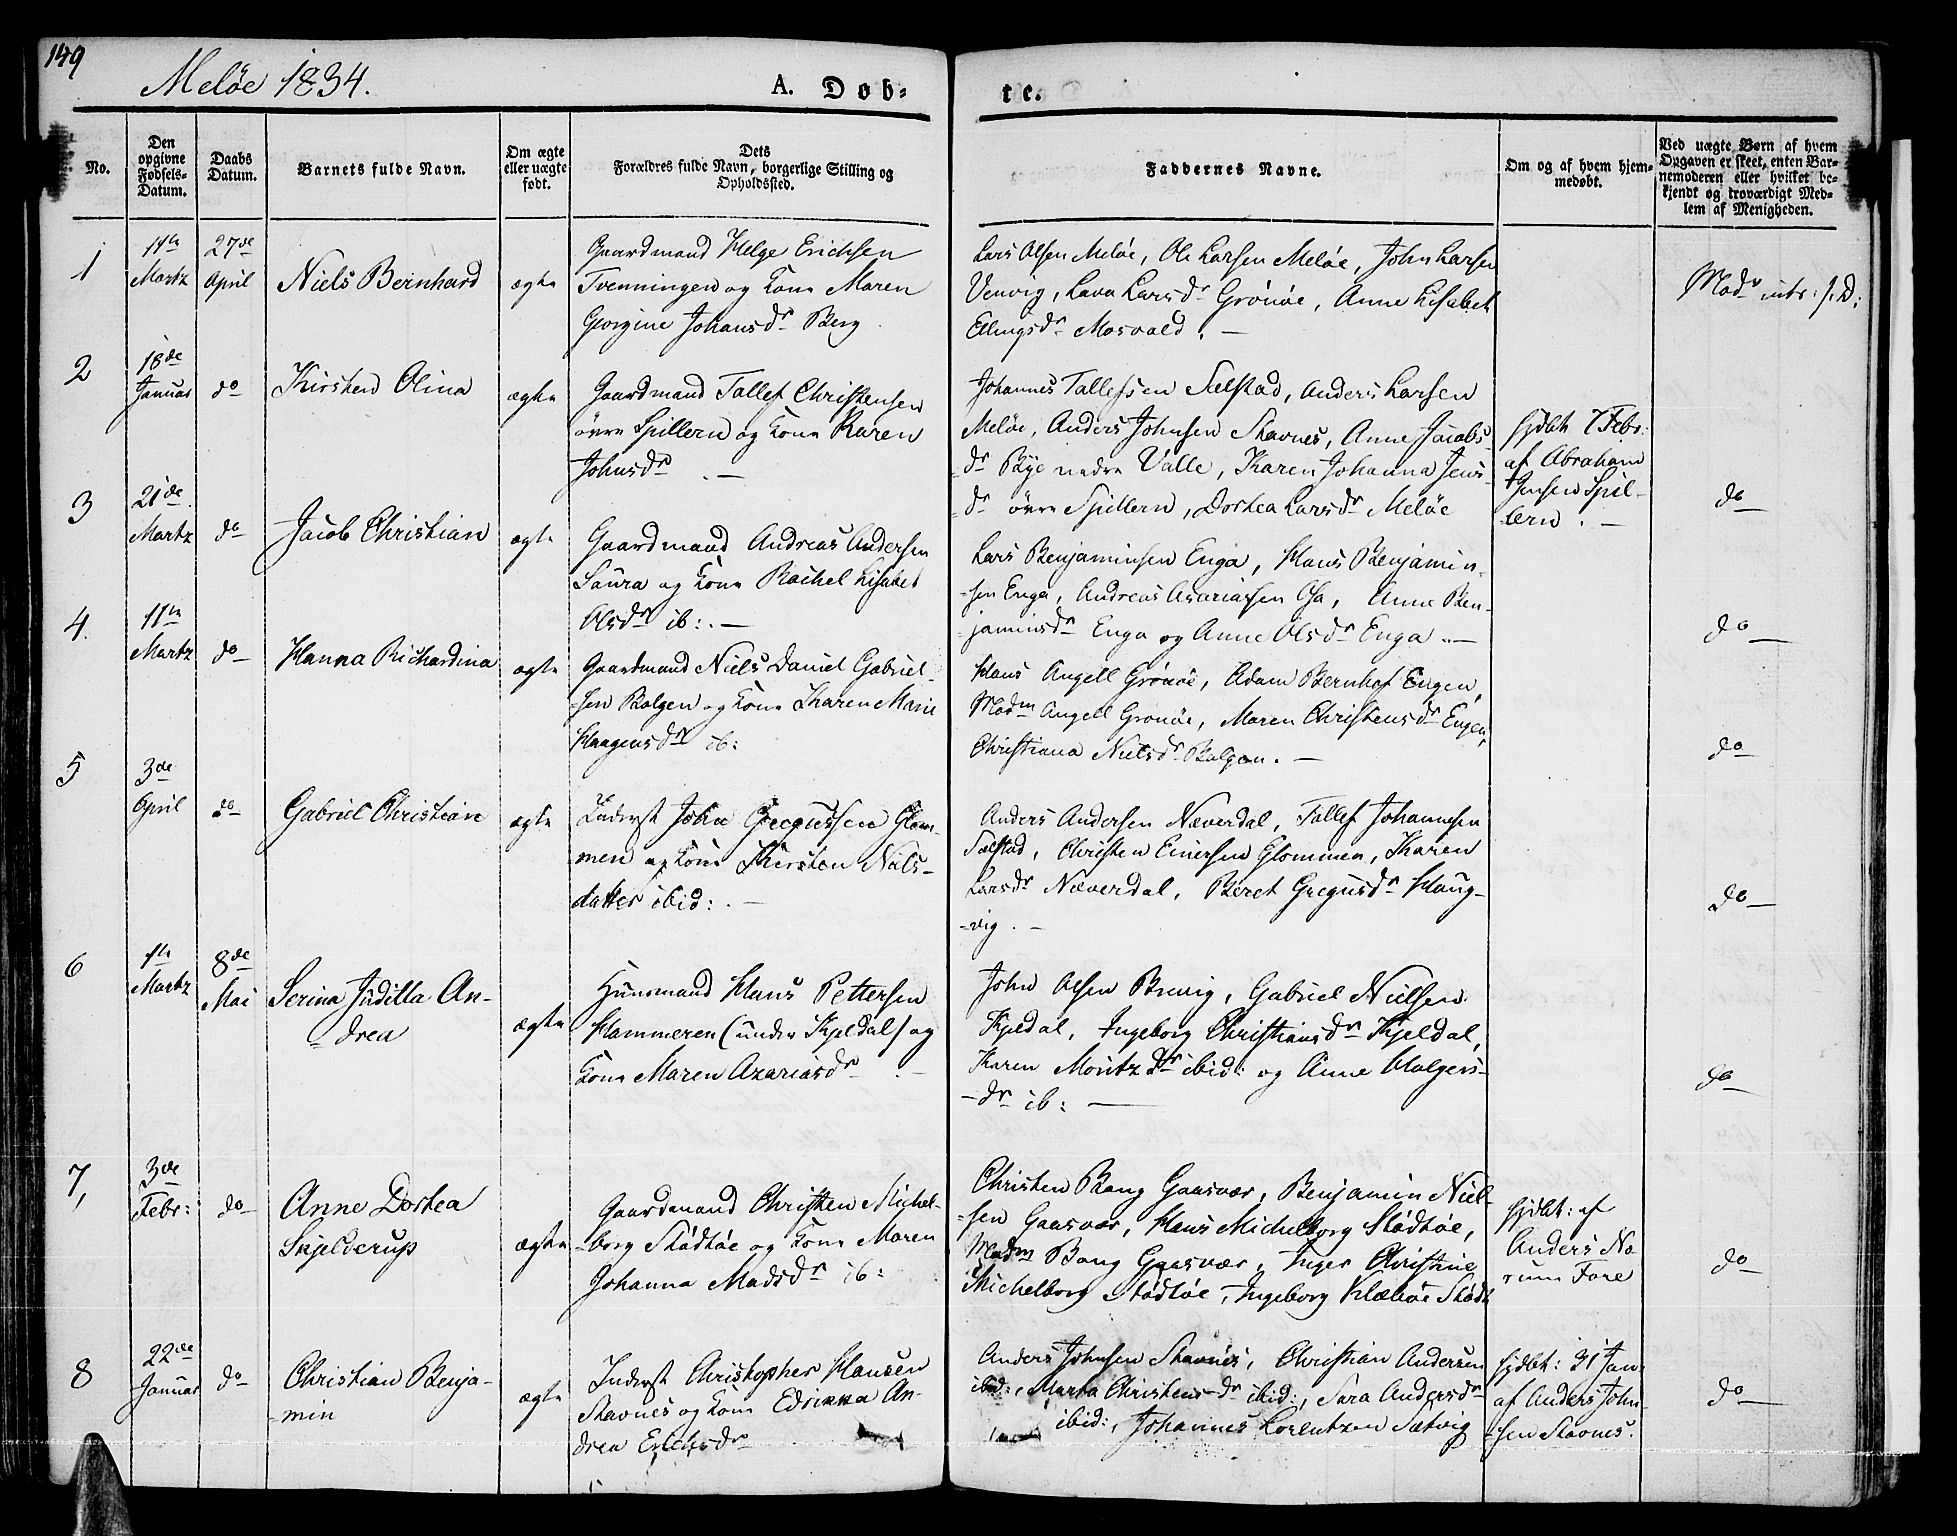 149
Meløe 1834.
A. Døb-
te.
No.
Den
opgivne
Fødsels-
Datum.
Daabs
Datum.
Barnets fulde Navn.
Om ægte
eller uægte
født.
Dets
Forældres fulde Navn, borgerlige Stilling og
Opholdssted.
Faddernes Navne.
Om og af hvem hjem-
medøbt.
Ved uægte Børn af hvem
Opgaven er skeet, enten Bar-
nemoderen eller hvilket be-
kjendt og troværdigt Med-
lem af Menigheden.
1
11te
Martz
27de
April
Niels Bernhard
ægte
Gaardmand Helge Erichsen
Tvenningen og Kone Maren
Georgine Johansdr Berg
Lars Olsen Meløe, Ole Larsen Meløe, John Larsen
Venvig, Lava Larsdr Grønøe, Anne Lisabet
Ellingsdr Mosvold. —
Modr intr: s. D:
2
18de
Januar
do
Kirsten Olina
ægte
Gaardmand Tallef Christensen
øvre Spillern og Kone Karen
Johnsdr . —
Johannes Tallefsen Selstad, Anders Larsen
Meløe, Anders Johnsen Stavnes, Anne Jacobs-
dr Rye nedre Valle, Karen Johanna Jens-
dr øvre Spillern, Dortea Larsdr Meløe
hjdbt 7 Febr:
af Abraham
Jensen Spil-
lern . —
do
3
21de
Martz
do
Jacob Christian
ægte
Gaardmand Andreas Andersen
Saura og Kone Rachel Lisabet
Olsdr ib: . —
Lars Benjaminsen Enga, Hans Benjamin-
-sen Enga, Andreas Asariassen Osa, Anne Ben-
-jaminsdr Enga og Anne Olsdr Enga . —
do
4.
11te
Martz
do
Hanna Richardina
ægte
Gaardmand Niels Daniel Gabriel-
-sen Bolgen og Kone Karen Marie
Haagensdr ib:
Hans Angell Grønøe, Adam Bernhof Engen,
Madm Angell Grønøe, Maren Christensdr Engen,
Christiana Nielsdr Bolgen. —
do
5
3de
April
do
Gabriel Christian
ægte
Inderst John Gregussen Glom-
men og Kone Kirsten Niels-
datter ibid: . —
Anders Andersen Næverdal, Tallef Johannesen
Selstad, Christen Einersen Glommen, Karen
Larsdr Næverdal, Beret Gregusdr Haug-
-vig . —
do
6
1te
Martz
8de
Mai
Serina Juditta An-
drea
ægte
Huusmand Hans Pettersen
Hammeren (under Kjeldal) og
Kone Maren Azariasdr . —
John Olsen Brevig, Gabriel Nielsen
Kjeldal, Ingeborg Christiansdr Kjeldal,
Karen Moritzdr ibid: og Anne Holgers-
-dr ib: —
do
7,
3de
Febr:
do
Anne Dortea
Skjelderup
ægte
Gaardmand Christen Michel-
-borg Stødtøe og Kone Maren
Johanna Madsdr ib:
Christen Bang Gaasvær, Benjamin Niel-
-sen Gaasvær, Hans Michelborg Stødtøe,
Madm Bang Gaasvær, Inger Christine
Michelborg Stødtøe, Ingeborg Klæbøe Stødt
hjdbt: af
Anders No
rum Fore
do
8
22de
Januar
do
Christian Benja-
-min
ægte
Inderst Christopher Hansen
Stavnes og Kone Edvikka An-
drea Erichsdr
Anders Johnsen Stavnes, Christian Andersen
ibid:, Marta Christensdr ibid:, Sara Andersdr
ibid:, Johannes Lorentzen Sætvig
hjdbt: 31 Jan:
af Anders John-
-sen Stavnes.
do